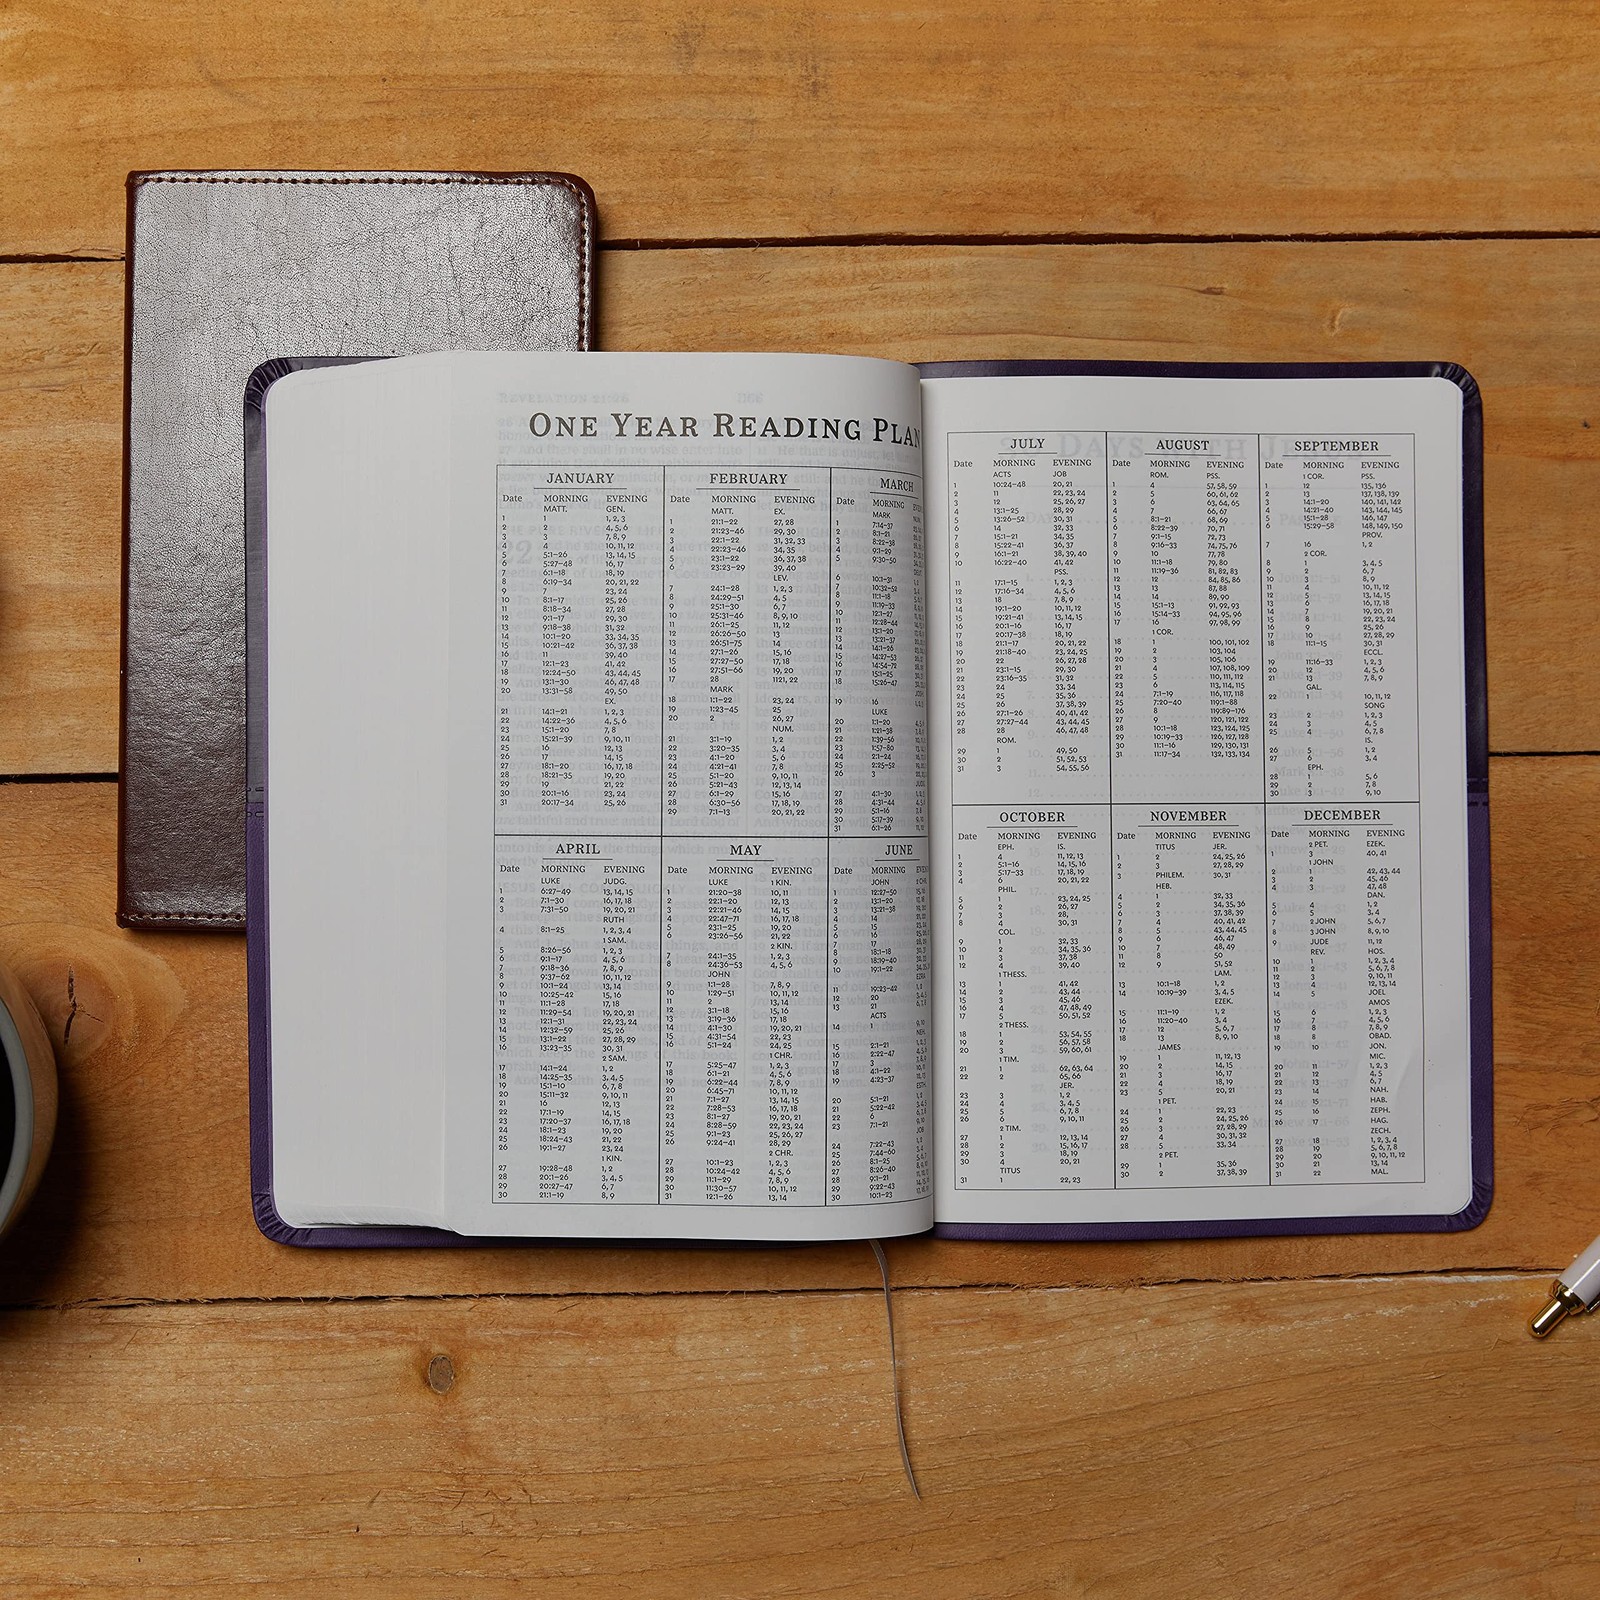 ONE YEAR READING PLAN
JANUARY
Date MORNING EVENING
MATT. GEN.
1 1 1, 2, 3
2 2 4, 5, 6
3 3 7, 8, 9
4 4 10, 11, 12
5 5:1–26 13, 14, 15
6 5:27–48 16, 17
7 6:1–18 18, 19
8 6:19–34 20, 21, 22
9 7 23, 24
10 8:1–17 25, 26
11 8:18–34 27, 28
12 9:1–17 29, 30
13 9:18–38 31, 32
14 10:1–20 33, 34, 35
15 10:21–42 36, 37, 38
16 11 39, 40
17 12:1–23 41, 42
18 12:24–50 43, 44, 45
19 13:1–30 46, 47, 48
20 13:31–58 49, 50
EX.
21 14:1–21 1, 2, 3
22 14:22–36 4, 5, 6
23 15:1–20 7, 8
24 15:21–39 9, 10, 11
25 16 12, 13
26 17 14, 15
27 18:1–20 16, 17, 18
28 18:21–35 19, 20
29 19 21, 22
30 20:1–16 23, 24
31 20:17–34 25, 26
FEBRUARY
Date MORNING EVENING
MATT. EX.
1 21:1–22 27, 28
2 21:23–46 29, 30
3 22:1–22 31, 32, 33
4 22:23–46 34, 35
5 23:1–22 36, 37, 38
6 23:23–29 39, 40
LEV.
7 24:1–28 1, 2, 3
8 24:29–51 4, 5
9 25:1–30 6, 7
10 25:31–46 8, 9, 10
11 26:1–25 11, 12
12 26:26–50 13
13 26:51–75 14
14 27:1–26 15, 16
15 27:27–50 17, 18
16 27:51–66 19, 20
17 28 1121, 22
MARK
18 1:1–22 23, 24
19 1:23–45 25
20 2 26, 27
NUM.
21 3:1–19 1, 2
22 3:20–35 3, 4
23 4:1–20 5, 6
24 4:21–41 7, 8
25 5:1–20 9, 10, 11
26 5:21–43 12, 13, 14
27 6:1–29 15, 16
28 6:30–56 17, 18, 19
29 7:1–13 20, 21, 22
MARCH
Date MORNING
MARK
1 7:14–37
2 8:1–21
3 8:22–38
4 9:1–29
5 9:30–50
6 10:1–31
7 10:32–52
8 11:1–18
9 11:19–33
10 12:1–27
11 12:28–44
12 13:1–20
13 13:21–37
14 14:1–26
15 14:27–53
16 14:54–72
17 15:1–25
18 15:26–47
19 16
LUKE
20 1:1–20
21 1:21–38
22 1:39–56
23 1:57–80
24 2:1–24
25 2:25–52
26 3
27 4:1–30
28 4:31–44
29 5:1–16
30 5:17–39
31 6:1–26
APRIL
Date MORNING EVENING
LUKE JUDG.
1 6:27–49 13, 14, 15
2 7:1–30 16, 17, 18
3 7:31–50 19, 20, 21
RUTH
4 8:1–25 1, 2, 3, 4
1 SAM.
5 8:26–56 1, 2, 3
6 9:1–17 4, 5, 6
7 9:18–36 7, 8, 9
8 9:37–62 10, 11, 12
9 10:1–24 13, 14
10 10:25–42 15, 16
11 11:1–28 17, 18
12 11:29–54 19, 20, 21
13 12:1–31 22, 23, 24
14 12:32–59 25, 26
15 13:1–22 27, 28, 29
16 13:23–35 30, 31
2 SAM.
17 14:1–24 1, 2
18 14:25–35 3, 4, 5
19 15:1–10 6, 7, 8
20 15:11–32 9, 10, 11
21 16 12, 13
22 17:1–19 14, 15
23 17:20–37 16, 17, 18
24 18:1–23 19, 20
25 18:24–43 21, 22
26 19:1–27 23, 24
1 KIN.
27 19:28–48 1, 2
28 20:1–26 3, 4, 5
29 20:27–47 6, 7
30 21:1–19 8, 9
MAY
Date MORNING EVENING
LUKE 1 KIN.
1 21:20–38 10, 11
2 22:1–20 12, 13
3 22:21–46 14, 15
4 22:47–71 16, 17, 18
5 23:1–25 19, 20
6 23:26–56 21, 22
2 KIN.
7 24:1–35 1, 2, 3
8 24:36–53 4, 5, 6
JOHN
9 1:1–28 7, 8, 9
10 1:29–51 10, 11, 12
11 2 13, 14
12 3:1–18 15, 16
13 3:19–36 17, 18
14 4:1–30 19, 20, 21
15 4:31–54 22, 23
16 5:1–24 24, 25
1 CHR.
17 5:25–47 1, 2, 3
18 6:1–21 4, 5, 6
19 6:22–44 7, 8, 9
20 6:45–71 10, 11, 12
21 7:1–27 13, 14, 15
22 7:28–53 16, 17, 18
23 8:1–27 19, 20, 21
24 8:28–59 22, 23, 24
25 9:1–23 25, 26, 27
26 9:24–41 28, 29
2 CHR.
27 10:1–23 1, 2, 3
28 10:24–42 4, 5, 6
29 11:1–29 7, 8, 9
30 11:30–57 10, 11, 12
31 12:1–26 13, 14
JUNE
Date MORNING
JOHN
1 12:27–50
2 13:1–20
3 13:21–38
4 14
5 15
6 16
7 17
8 18:1–18
9 18:19–40
10 19:1–22
11 19:23–42
12 20
13 21
ACTS
14 1
15 2:1–21
16 2:22–47
17 3
18 4:1–22
19 4:23–37
20 5:1–21
21 5:22–42
22 6
23 7:1–21
24 7:22–43
25 7:44–60
26 8:1–25
27 8:26–40
28 9:1–21
29 9:22–43
30 10:1–23
JULY
Date MORNING EVENING
ACTS JOB
1 10:24–48 20, 21
2 11 22, 23, 24
3 12 25, 26, 27
4 13:1–25 28, 29
5 13:26–52 30, 31
6 14 32, 33
7 15:1–21 34, 35
8 15:22–41 36, 37
9 16:1–21 38, 39, 40
10 16:22–40 41, 42
PSS.
11 17:1–15 1, 2, 3
12 17:16–34 4, 5, 6
13 18 7, 8, 9
14 19:1–20 10, 11, 12
15 19:21–41 13, 14, 15
16 20:1–16 16, 17
17 20:17–38 18, 19
18 21:1–17 20, 21, 22
19 21:18–40 23, 24, 25
20 22 26, 27, 28
21 23:1–15 29, 30
22 23:16–35 31, 32
23 24 33, 34
24 25 35, 36
25 26 37, 38, 39
26 27:1–26 40, 41, 42
27 27:27–44 43, 44, 45
28 28 46, 47, 48
ROM.
29 1 49, 50
30 2 51, 52, 53
31 3 54, 55, 56
AUGUST
Date MORNING EVENING
ROM. PSS.
1 4 57, 58, 59
2 5 60, 61, 62
3 6 63, 64, 65
4 7 66, 67
5 8:1–21 68, 69
6 8:22–39 70, 71
7 9:1–15 72, 73
8 9:16–33 74, 75, 76
9 10 77, 78
10 11:1–18 79, 80
11 11:19–36 81, 82, 83
12 12 84, 85, 86
13 13 87, 88
14 14 89, 90
15 15:1–13 91, 92, 93
16 15:14–33 94, 95, 96
17 16 97, 98, 99
1 COR.
18 1 100, 101, 102
19 2 103, 104
20 3 105, 106
21 4 107, 108, 109
22 5 110, 111, 112
23 6 113, 114, 115
24 7:1–19 116, 117, 118
25 7:20–40 119:1–88
26 8 119:89–176
27 9 120, 121, 122
28 10:1–18 123, 124, 125
29 10:19–33 126, 127, 128
30 11:1–16 129, 130, 131
31 11:17–34 132, 133, 134
SEPTEMBER
Date MORNING EVENING
1 COR. PSS.
1 12 135, 136
2 13 137, 138, 139
3 14:1–20 140, 141, 142
4 14:21–40 143, 144, 145
5 15:1–28 146, 147
6 15:29–58 148, 149, 150
PROV.
7 16 1, 2
2 COR.
8 1 3, 4, 5
9 2 6, 7
10 3 8, 9
11 4 10, 11, 12
12 5 13, 14, 15
13 6 16, 17, 18
14 7 19, 20, 21
15 8 22, 23, 24
16 9 25, 26
17 10 27, 28, 29
18 11:1–15 30, 31
ECCL.
19 11:16–33 1, 2, 3
20 12 4, 5, 6
21 13 7, 8, 9
GAL.
22 1 10, 11, 12
SONG
23 2 1, 2, 3
24 3 4, 5
25 4 6, 7, 8
IS.
26 5 1, 2
27 6 3, 4
EPH.
28 1 5, 6
29 2 7, 8
30 3 9, 10
OCTOBER
Date MORNING EVENING
EPH. IS.
1 4 11, 12, 13
2 5:1–16 14, 15, 16
3 5:17–33 17, 18, 19
4 6 20, 21, 22
PHIL.
5 1 23, 24, 25
6 2 26, 27
7 3 28,
8 4 30, 31
COL.
9 1 32, 33
10 2 34, 35, 36
11 3 37, 38
12 4 39, 40
1 THESS.
13 1 41, 42
14 2 43, 44
15 3 45, 46
16 4 47, 48, 49
17 5 50, 51, 52
2 THESS.
18 1 53, 54, 55
19 2 56, 57, 58
20 3 59, 60, 61
1 TIM.
21 1 62, 63, 64
22 2 65, 66
JER.
23 3 1, 2
24 4 3, 4, 5
25 5 6, 7, 8
26 6 9, 10, 11
2 TIM.
27 1 12, 13, 14
28 2 15, 16, 17
29 3 18, 19
30 4 20, 21
TITUS
31 1 22, 23
NOVEMBER
Date MORNING EVENING
TITUS JER.
1 2 24, 25, 26
2 3 27, 28, 29
PHILEM.
3 30, 31
HEB.
4 1 32, 33
5 2 34, 35, 36
6 3 37, 38, 39
7 4 40, 41, 42
8 5 43, 44, 45
9 6 46, 47
10 7 48, 49
11 8 50
12 9 51, 52
LAM.
13 10:1–18 1, 2
14 10:19–39 3, 4, 5
EZEK.
15 11:1–19 1, 2
16 11:20–40 3, 4
17 12 5, 6, 7
18 13 8, 9, 10
JAMES
19 1 11, 12, 13
20 2 14, 15
21 3 16, 17
22 4 18, 19
23 5 20, 21
1 PET.
24 1 22, 23
25 2 24, 25, 26
26 3 27, 28, 29
27 4 30, 31, 32
28 5 33, 34
2 PET.
29 1 35, 36
30 2 37, 38, 39
DECEMBER
Date MORNING EVENING
2 PET. EZEK.
1 3 40, 41
1 JOHN
2 1 42, 43, 44
3 2 45, 46
4 3 47, 48
DAN.
5 4 1, 2
6 5 3, 4
7 2 JOHN 5, 6, 7
8 3 JOHN 8, 9, 10
9 JUDE 11, 12
REV. HOS.
10 1 1, 2, 3, 4
11 2 5, 6, 7, 8
12 3 9, 10, 11
13 4 12, 13, 14
14 5 JOEL
AMOS
15 6 1, 2, 3
16 7 4, 5, 6
17 8 7, 8, 9
18 9 OBAD.
19 10 JON.
MIC.
20 11 1, 2, 3
21 12 4, 5
22 13 6, 7
23 14 NAH.
24 15 HAB.
25 16 ZEPH.
26 17 HAG.
ZECH.
27 18 1, 2, 3, 4
28 19 5, 6, 7, 8
29 20 9, 10, 11, 12
30 21 13, 14
31 22 MAL.